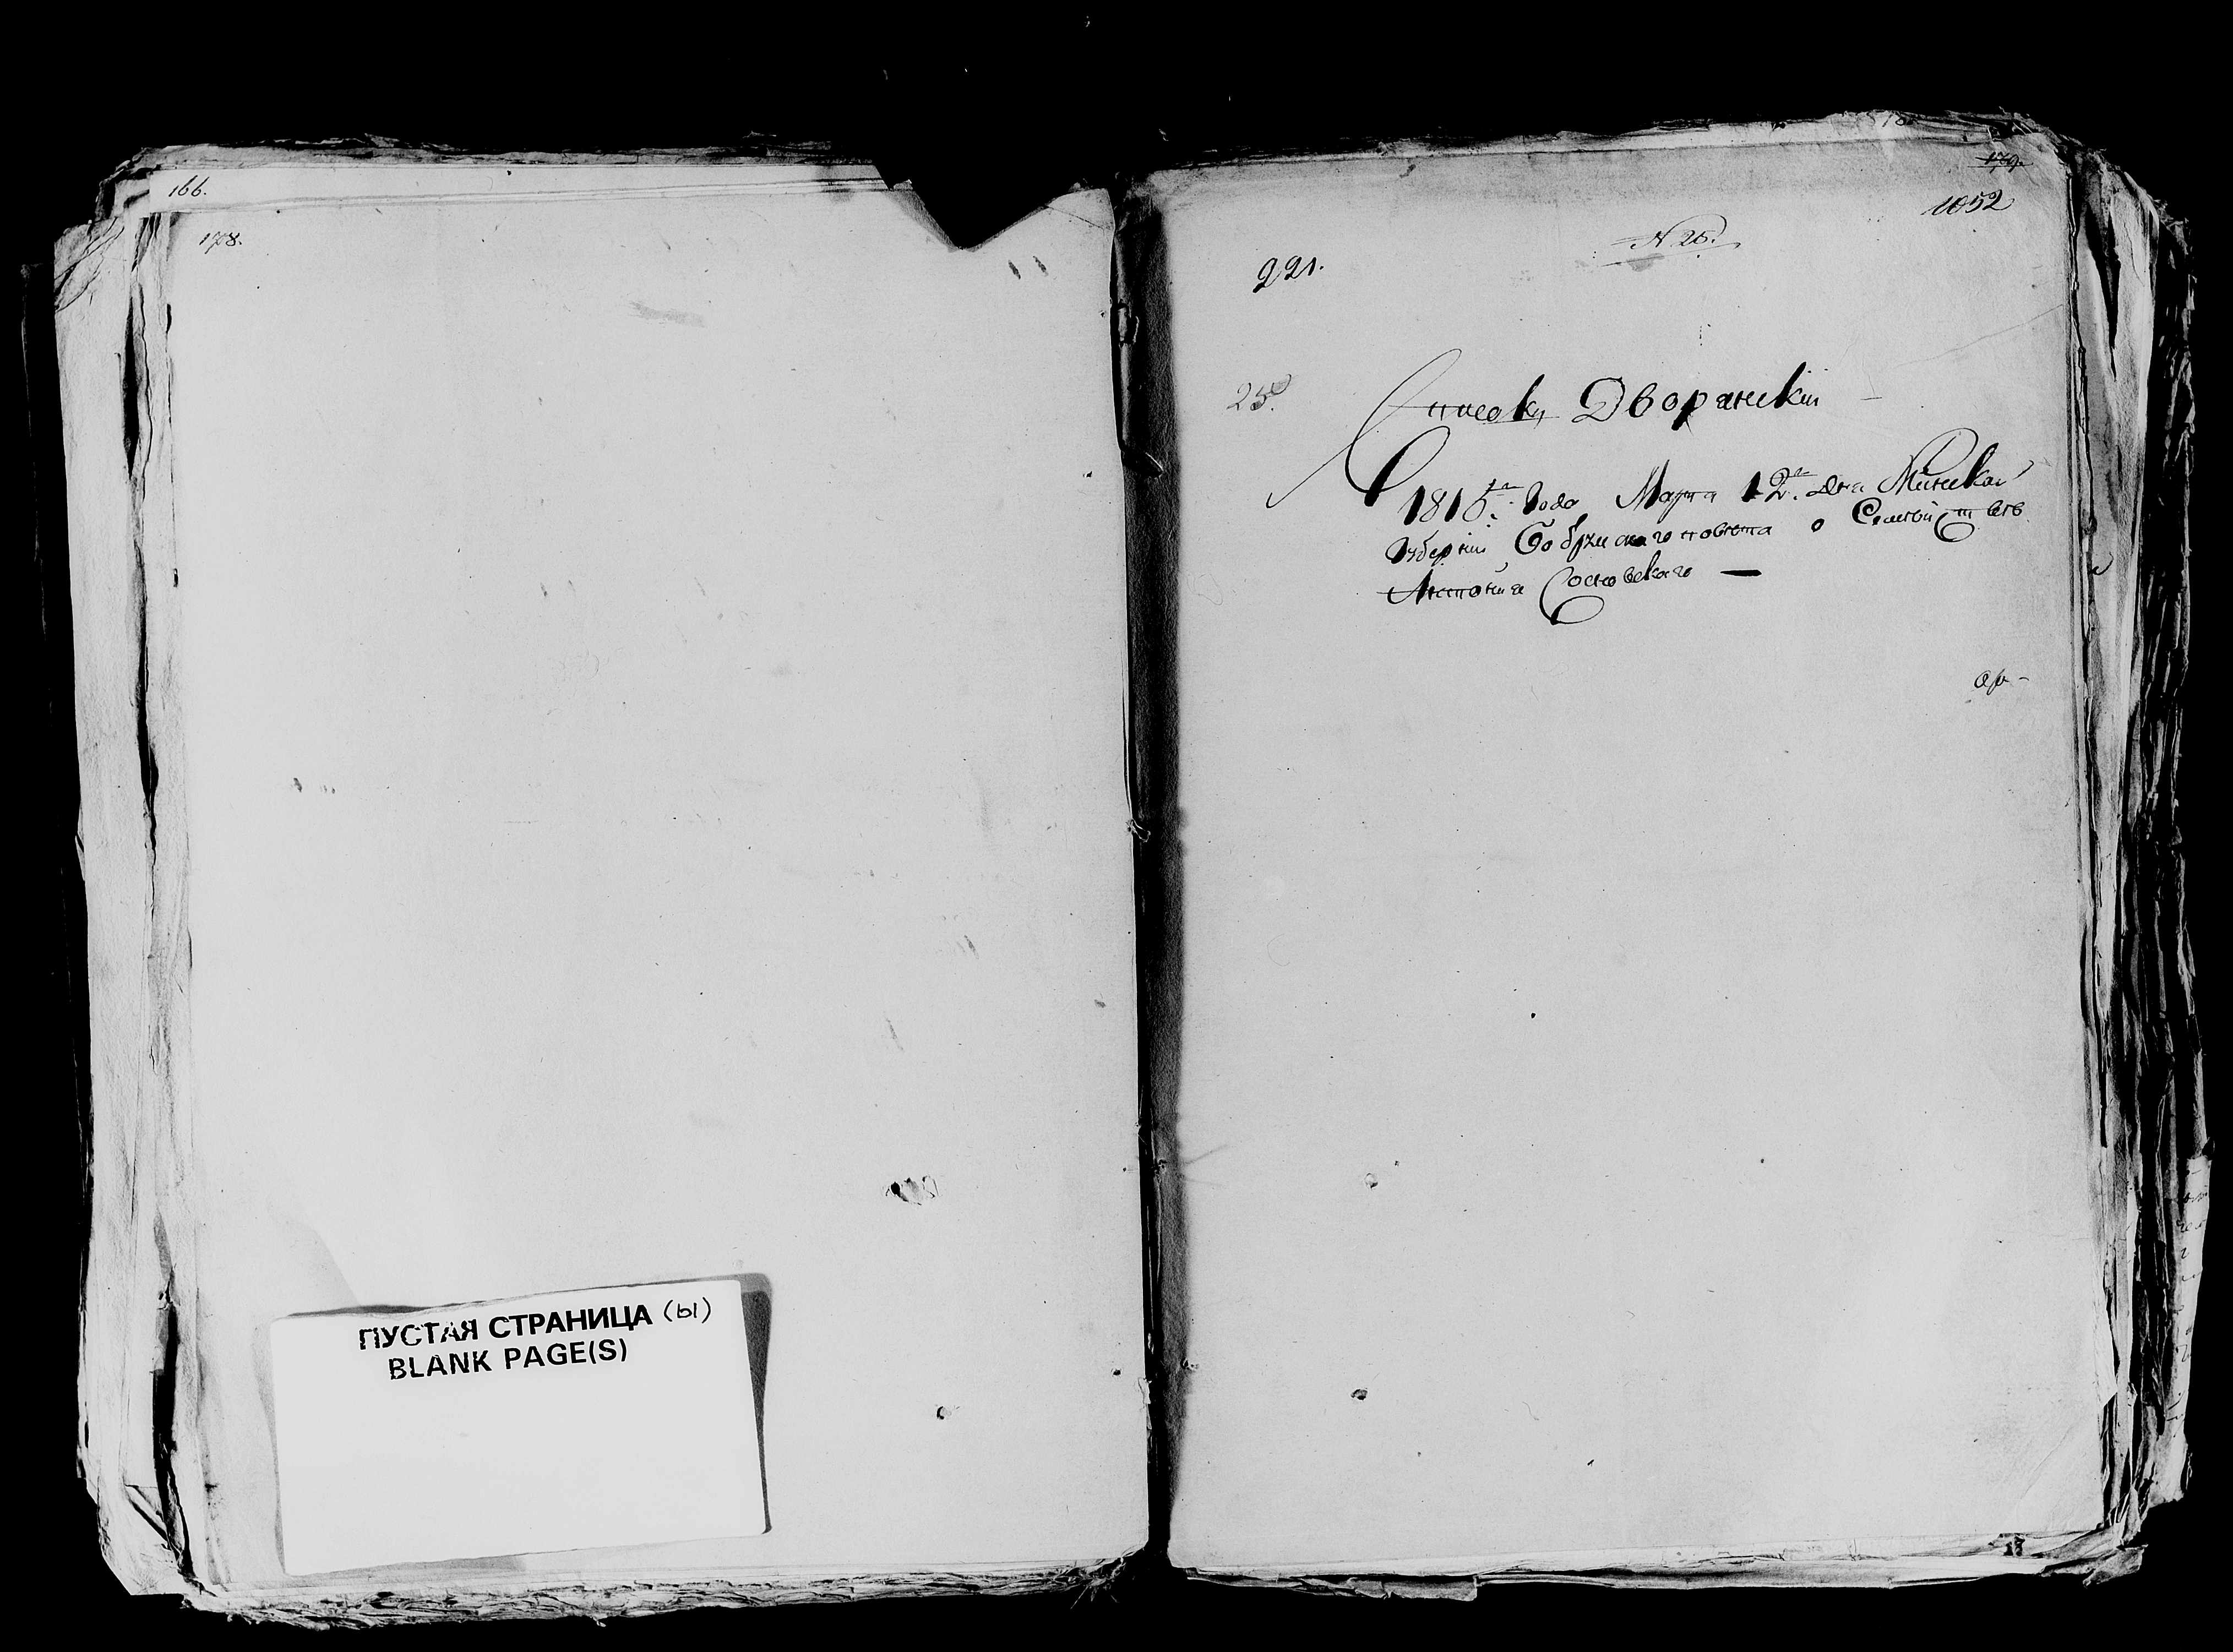 166.
178.
ПУСТАЯ СТРАНИЦА (ы)
BLANK PAGE(S)
179.
1052
N. 25.
221.
25.
Списокъ Дворянскій
1815го Года Марта 12го дня Минской
Губерніи Бобруйскаго повѣта о Семѣйствѣ
Антонія Сосновскаго —